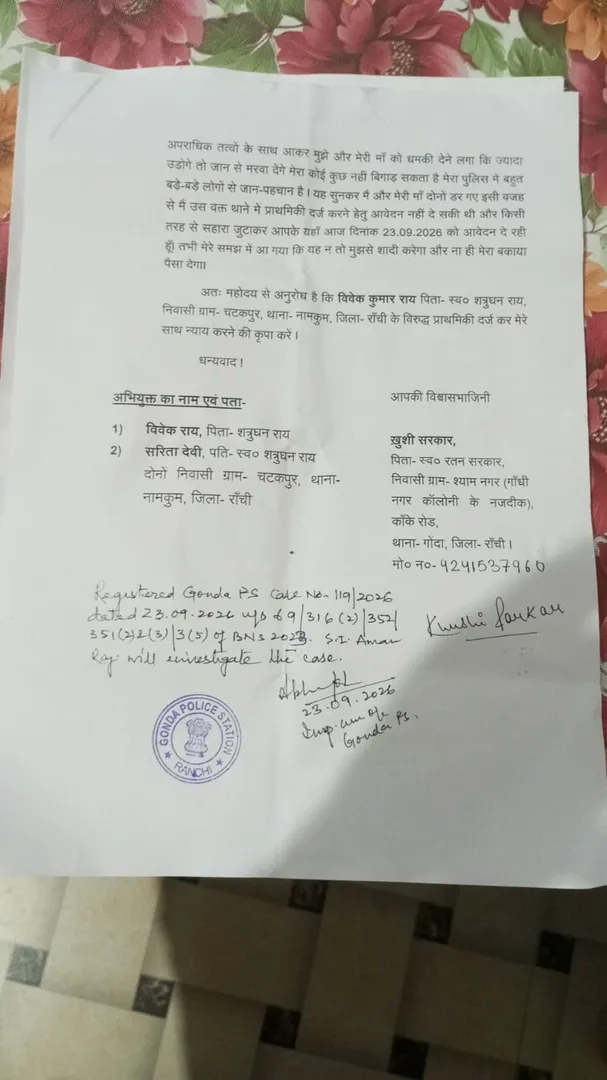 अपराधिक तत्वों के साथ आकर मुझे और मेरी माँ को धमकी देने लगा कि ज्यादा
उडोगे तो जान से मरवा देंगे मेरा कोई कुछ नही बिगाड़ सकता है मेरा पुलिस मे बहुत
बड़े-बड़े लोगों से जान-पहचान है। यह सुनकर मै और मेरी माँ दोनों डर गए इसी वजह
से मैं उस वक्त थाने में प्राथमिकी दर्ज करने हेतु आवेदन नहीं दे सकी थी और किसी
तरह से सहारा जुटाकर आपके यहाँ आज दिनांक 23.09.2026 को आवेदन दे रही
हूँ। तभी मेरे समझ में आ गया कि यह न तो मुझसे शादी करेगा और ना ही मेरा बकाया
पैसा देगा।
अतः महोदय से अनुरोध है कि विवेक कुमार राय पिता- स्व० शत्रुघन राय,
निवासी ग्राम- चटकपुर, थाना- नामकुम, जिला- राँची के विरुद्ध प्राथमिकी दर्ज कर मेरे
साथ न्याय करने की कृपा करें।
धन्यवाद !
अभियुक्त का नाम एवं पता-
1) विवेक राय, पिता- शत्रुघन राय
2) सरिता देवी, पति- स्व० शत्रुघन राय
दोनों निवासी ग्राम- चटकपुर, थाना-
नामकुम, जिला- राँची
आपकी विश्वासभाजिनी
ख़ुशी सरकार,
पिता- स्व० रतन सरकार,
निवासी ग्राम- श्याम नगर (गाँधी
नगर कॉलोनी के नजदीक),
काँके रोड,
थाना- गोंदा, जिला- राँची।
मो० न०- 9241537960
Registered Gonda PS Case No- 119/2026
dated 23.09.2026 u/s 69/316(2)/352/
351(2)2(3)/3(5) of BNS 2023. S.I. Aman
Raj will investigate the case.
Khushi Sarkar
23.09.2026
Insp. cum o/c
Gonda PS.
GONDA POLICE STATION
RANCHI